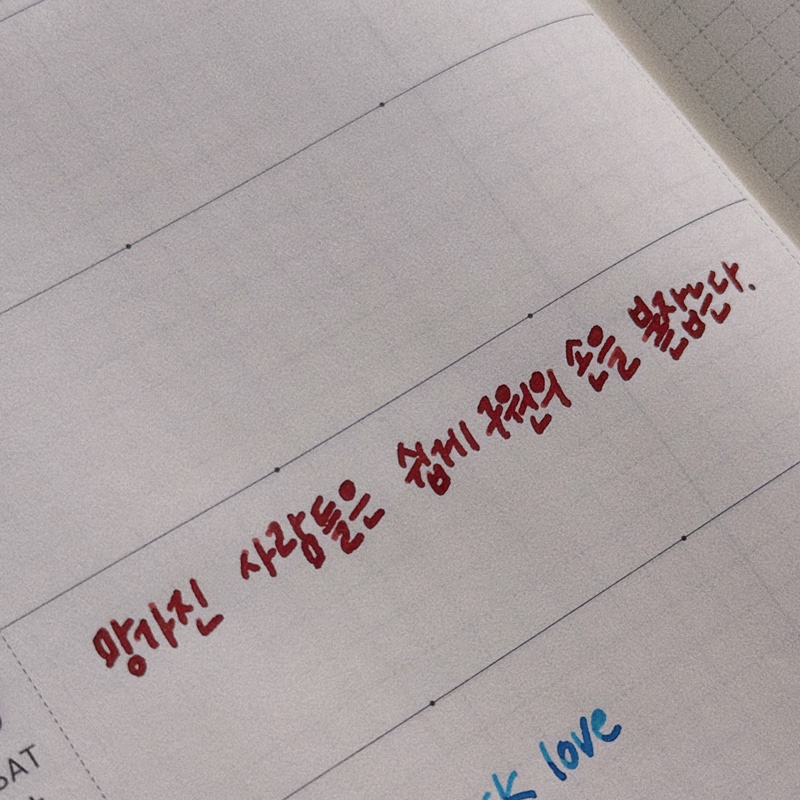 망가진 사람들은 쉽게 구원의 손을 붙잡는다.
love
SAT